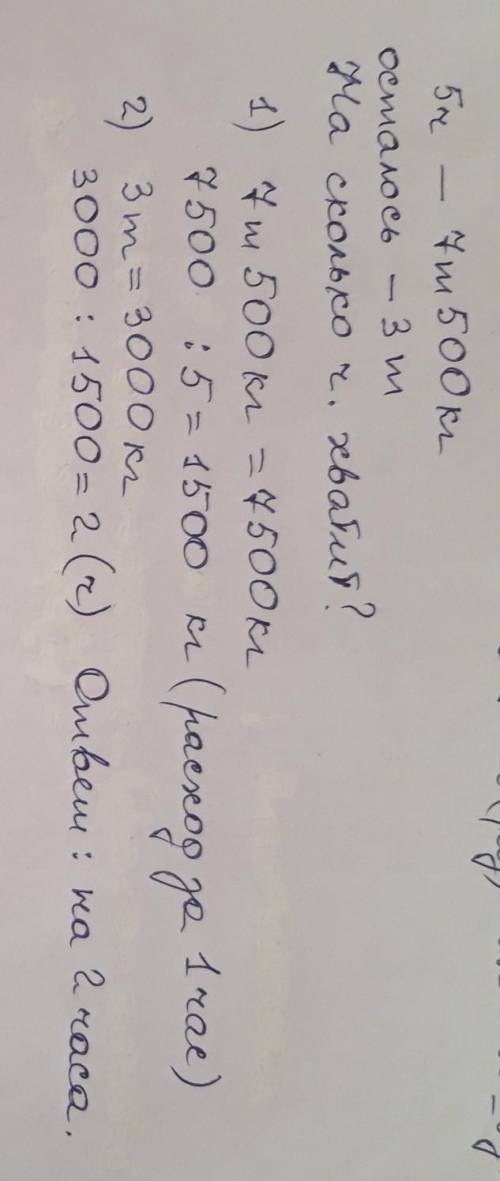 5ч — 7т500кг
осталось – 3т
На сколько ч. хватит?
1) 7т 500кг = 7500кг
7500 : 5 = 1500 кг (расход за 1 час)
2) 3т = 3000кг
3000 : 1500 = 2 (ч) Ответ: на 2 часа.